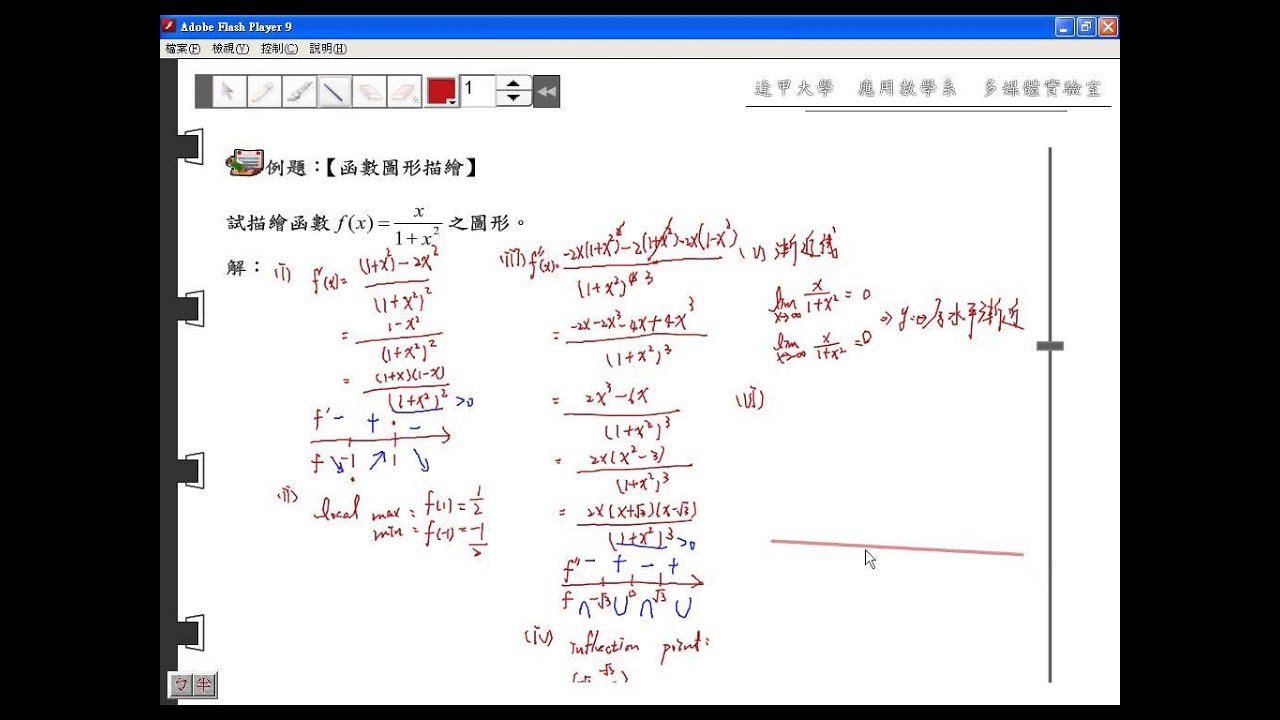 Adobe Flash Player 9
檔案(F) 檢視(V) 控制(C) 說明(H)
1
逢甲大學 應用數學系 多媒體實驗室
例題：【函數圖形描繪】
試描繪函數 f(x) = x / (1+x²) 之圖形。
解：
(i) f'(x) = ((1+x²) - 2x²) / (1+x²)²
= (1-x²) / (1+x²)²
= (1+x)(1-x) / (1+x²)² >0
f' - + -
f ↘ -1 ↗ 1 ↘
(ii) local max : f(1) = 1/2
min = f(-1) = -1/2
(iii) f''(x) = (-2x(1+x²)² - 2(1+x²)·2x(1-x²)) / (1+x²)⁴ 3
= (-2x-2x³-4x+4x³) / (1+x²)³
= (2x³-6x) / (1+x²)³
= 2x(x²-3) / (1+x²)³
= 2x(x+√3)(x-√3) / (1+x²)³ >0
f'' - + - +
f ∩ -√3 ∪ 0 ∩ √3 ∪
(iv) inflection point:
(v) 漸近線
lim x→∞ x / (1+x²) = 0
lim x→-∞ x / (1+x²) = 0
⇒ y=0 為水平漸近
(vi)
ㄅ 半